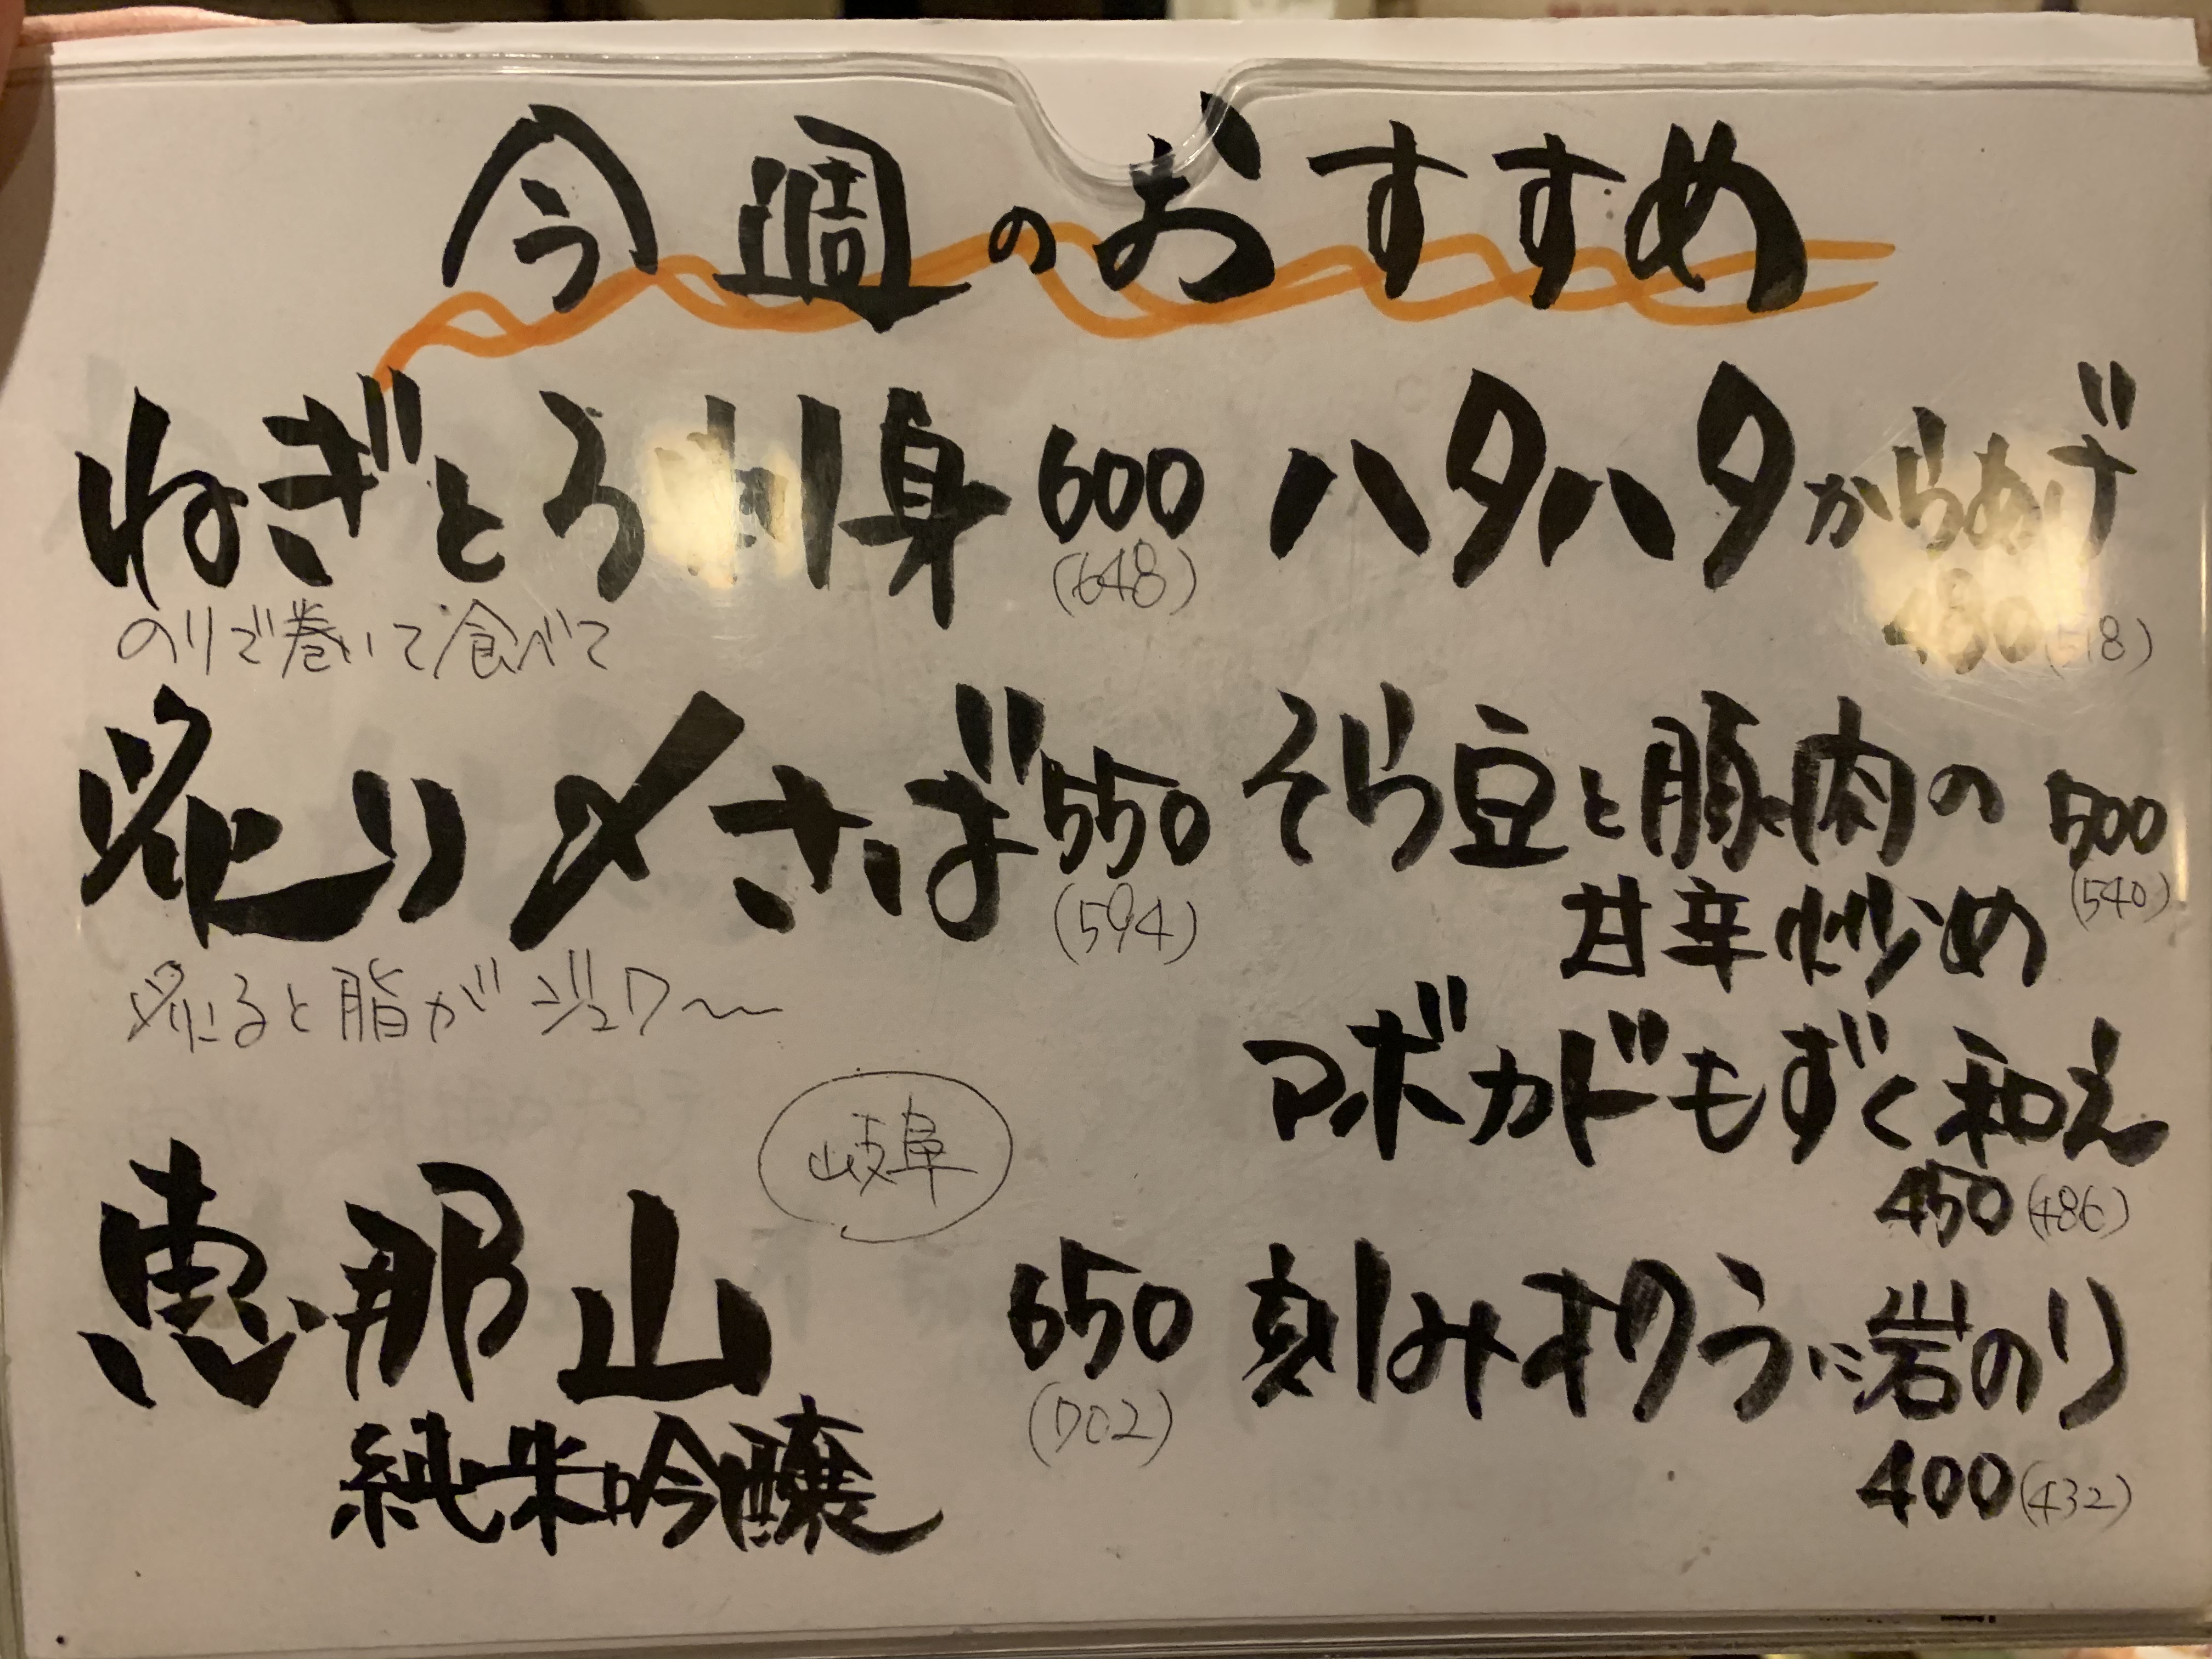 今週のおすすめ
ねぎとろ刺身 600
(648)
のりで巻いて食べて
炙り〆さば 550
(594)
炙ると脂がジュワ〜
岐阜
恵那山 650
(702)
純米吟醸
ハタハタからあげ
480(518)
そら豆と豚肉の 500
甘辛炒め (540)
アボカドもずく和え
450(486)
刻みオクラに岩のり
400(432)